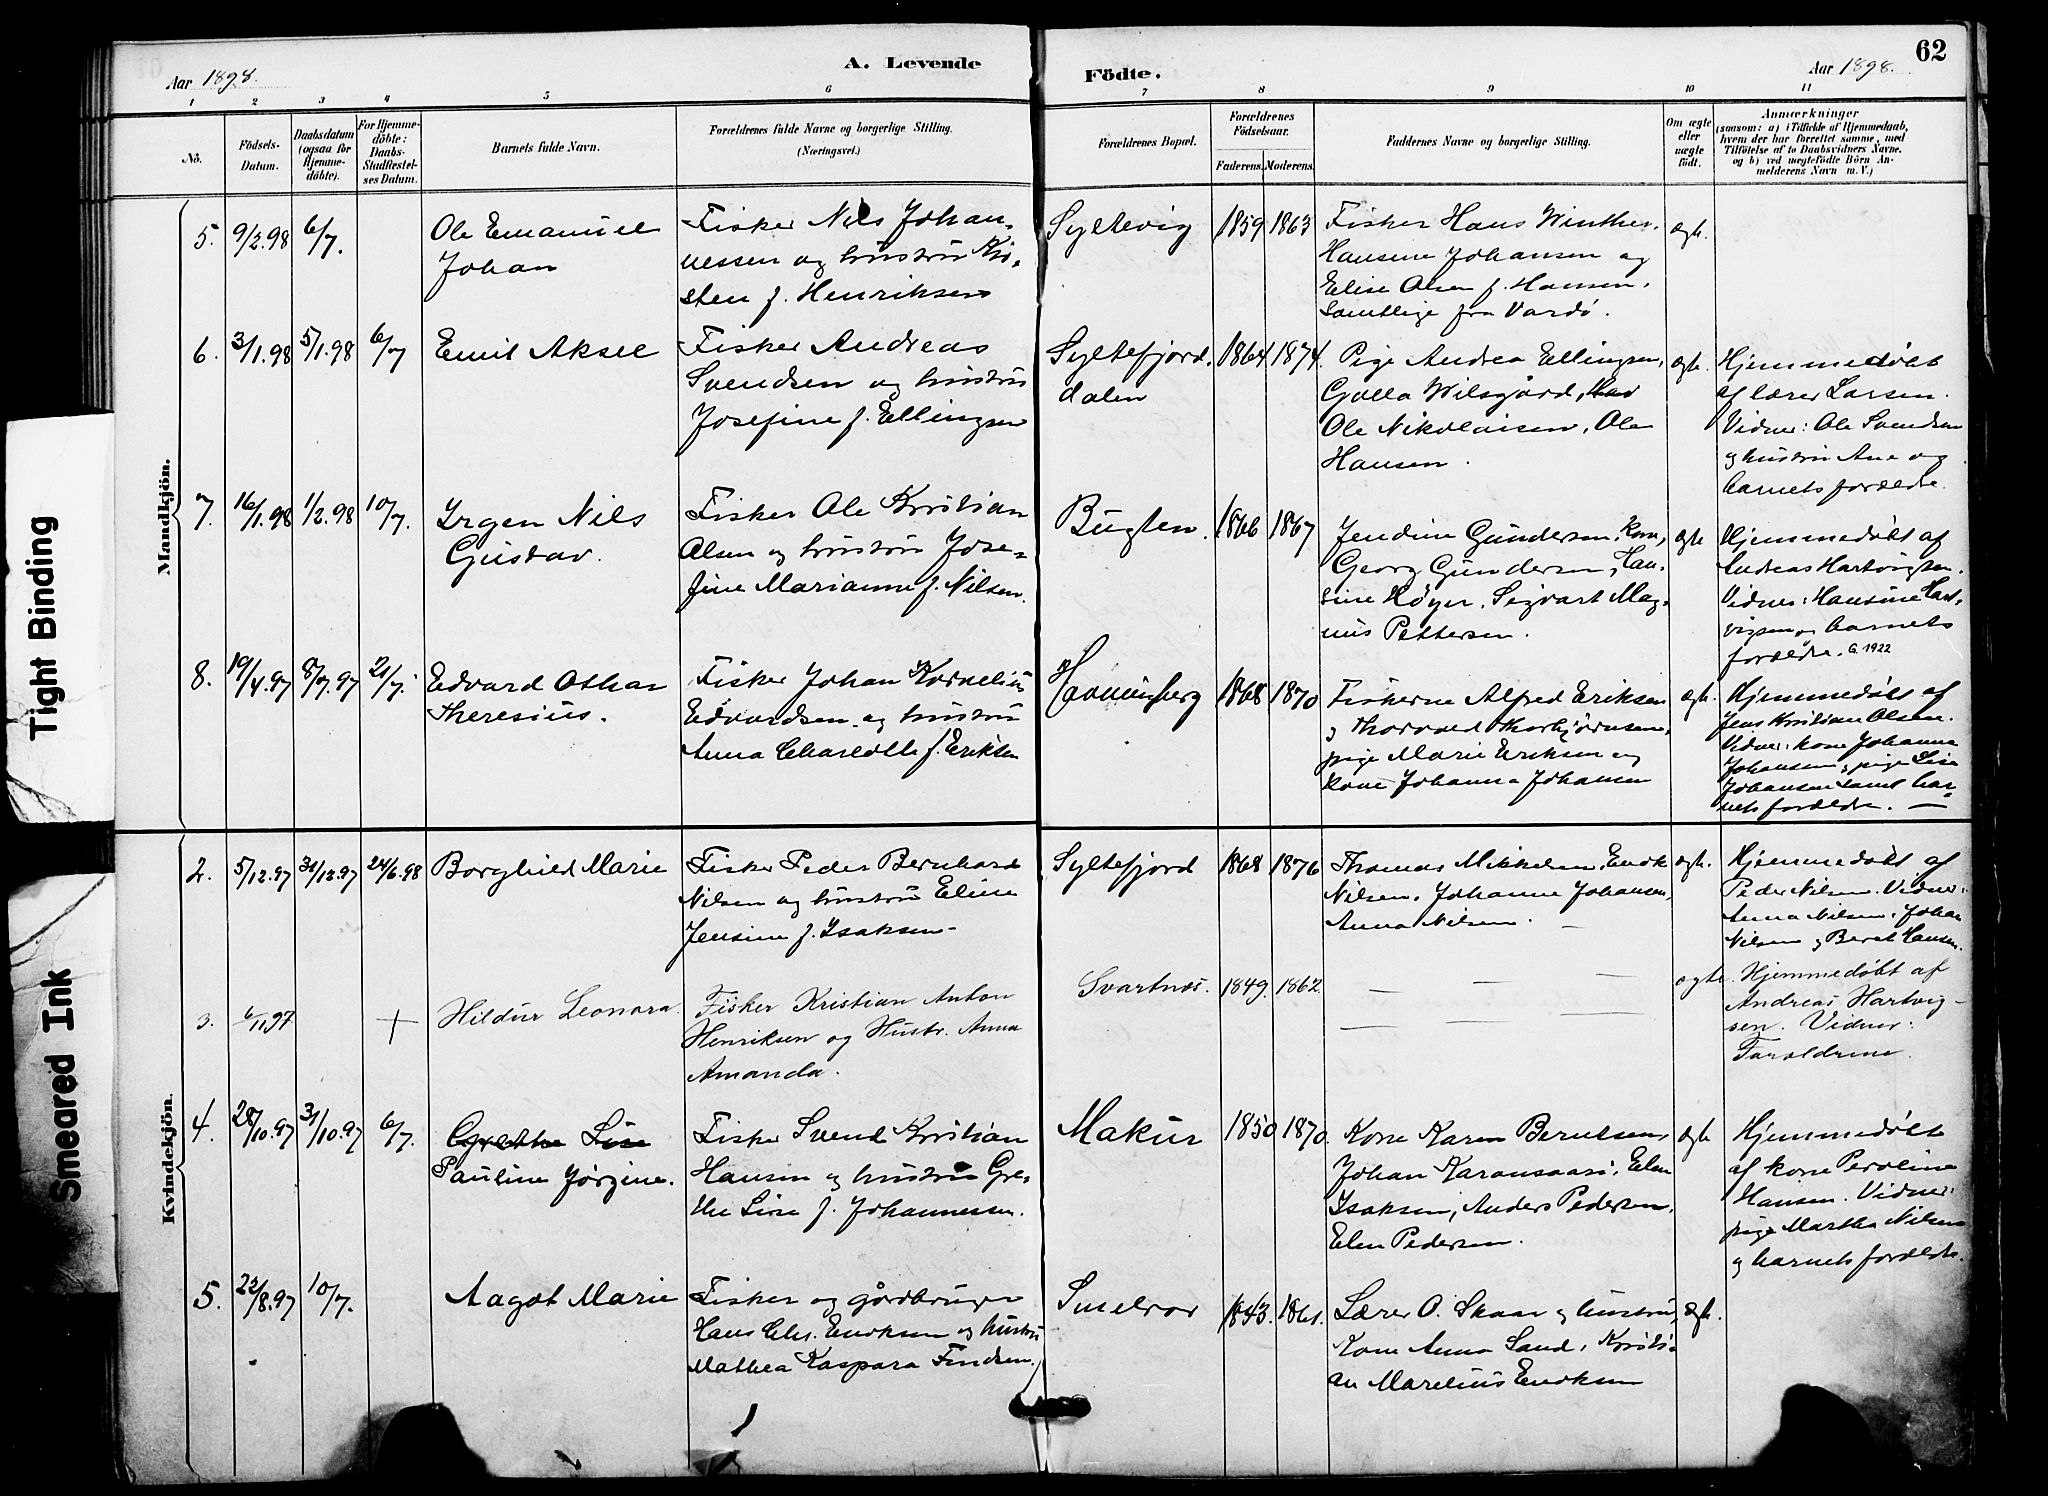 Aar 1898.
A. Levende
Födte.
Aar 1898.
62
1 2 3 4 5 6 7 8 9 10 11
Nö.
Födsels-
Datum.
Daabsdatum
(ogsaa for
Hjemme-
döbte).
For Hjemme-
döbte:
Daabs-
Stadfæstel-
ses Datum.
Barnets fulde Navn.
Forældrenes fulde Navne og borgerlige Stilling.
(Næringsvei.)
Forældrenes Bopæl.
Forældrenes
Födselsaar.
Faderens.
Moderens.
Faddernes Navne og borgerlige Stilling.
Om ægte
eller
uægte
födt.
Anmærkninger
(saasom: a) i Tilfælde af Hjemmedaab,
hvem der har forrettet samme, med
Tilföielse af to Daabsvidners Navne,
og b) ved uægtefödte Börn An-
melderens Navn m. V.)
Mandkjön.
5. 9/2.98 6/7.
Ole Emanuel
Johan
Fisker Nils Johan-
nessen og hustru Kir-
sten f. Henriksen
Syltevig
1859 1863
Fisker Hans Winther,
Hansine Johansen og
Elise Olsen f. Hansen,
samtlige fra Vardö.
ægt.
6. 3/1.98 5/1.98 6/7
Emil Aksel
Fisker Andreas
Svendsen og hustru
Josefine f. Ellingsen
Syltefjord.
dalen
1864 1874.
Pige Andrea Ellingsen,
Golla Wilsgård,
Ole Nikolaisen, Ole
Hansen.
ægte.
Hjemmedöbt
af lærer Larsen.
Vidner: Ole Svendsen
og hustru Ane og
barnets forældre.
7. 16/1.98 1/2.98 10/7.
Yrgen Nils
Gustav.
Fisker Ole Kristian
Olsen og hustru Jose-
fine Marianne f. Nilsen.
Bugten.
1866 1867
Jendine Gundersen, kone,
Georg Gundersen, Han-
sine Höyer, Sigvart Mag-
nus Pettersen.
ægte
Hjemmedöbt af
Andreas Hartvigsen.
Vidner: Hansine Hart-
vigsen og barnets
forældre. G. 1922
8. 19/4.97 8/7.97 21/7.
Edvard Othar
Theresius.
Fisker Johan Kornelius
Edvardsen og hustru
Anna Charlotte f. Eriksen
Havningberg
1868 1870
Fiskerne Alfred Eriksen
og Thorvald Thorbjörnsen,
pige Marie Eriksen og
kone Johanna Johansen
ægt.
Hjemmedöbt af
Jens Kristian Olsen.
Vidner: kone Johanna
Johansen og pige Lisa
Johansen samt bar-
nets forældre. —
Kvindekjön.
2. 5/12.97 31/12.97 24/6.98
Borghild Marie
Fisker Peder Bernhard
Nilsen og hustru Eline
Jensine f. Isaksen-
Syltefjord
1868 1876
Thomas Mikkelsen, Enok
Nilsen, Johanne Johansen,
Anna Nilsen.
ægt.
Hjemmedöbt af
Peder Nilsen. Vidner:
Anna Nilsen, Johan
Nilsen og Beret Hansen.
3. 6/11 97 +
Hildur Leonora.
Fisker Kristian Anton
Henriksen og Hustr. Anna
Amanda.
Svartnæs.
1849. 1862.
ægte.
Hjemmedöbt af
Andreas Hartvig-
sen. Vidner:
Forældrene.
4. 28/10.97 31/10.97 6/7.
Grethe Lise
Pauline Jörgine.
Fisker Svend Kristian
Hansen og hustru Gre-
the Lise f. Johannessen.
Makur
1850 1870.
Kone Karen Berntsen,
Johan Karansaari, Elen
Isaksen, Anders Pedersen,
Elen Pedersen.
ægte
Hjemmedöbt
af kone Peroline
Hansen. Vidner:
pige Martha Nilsen
og barnets forældre.
5. 22/8.97 10/7.
Aagot Marie
Fisker og gårdbruger
Hans Chr. Enoksen og hustru
Mathea Kaspara Findsen.
Smelror
1843. 1861.
Lærer O. Skaar og hustru,
Kone Anna Sand, Kristi-
an Marelius Enoksen
ægt.
Tight Binding
Smeared Ink